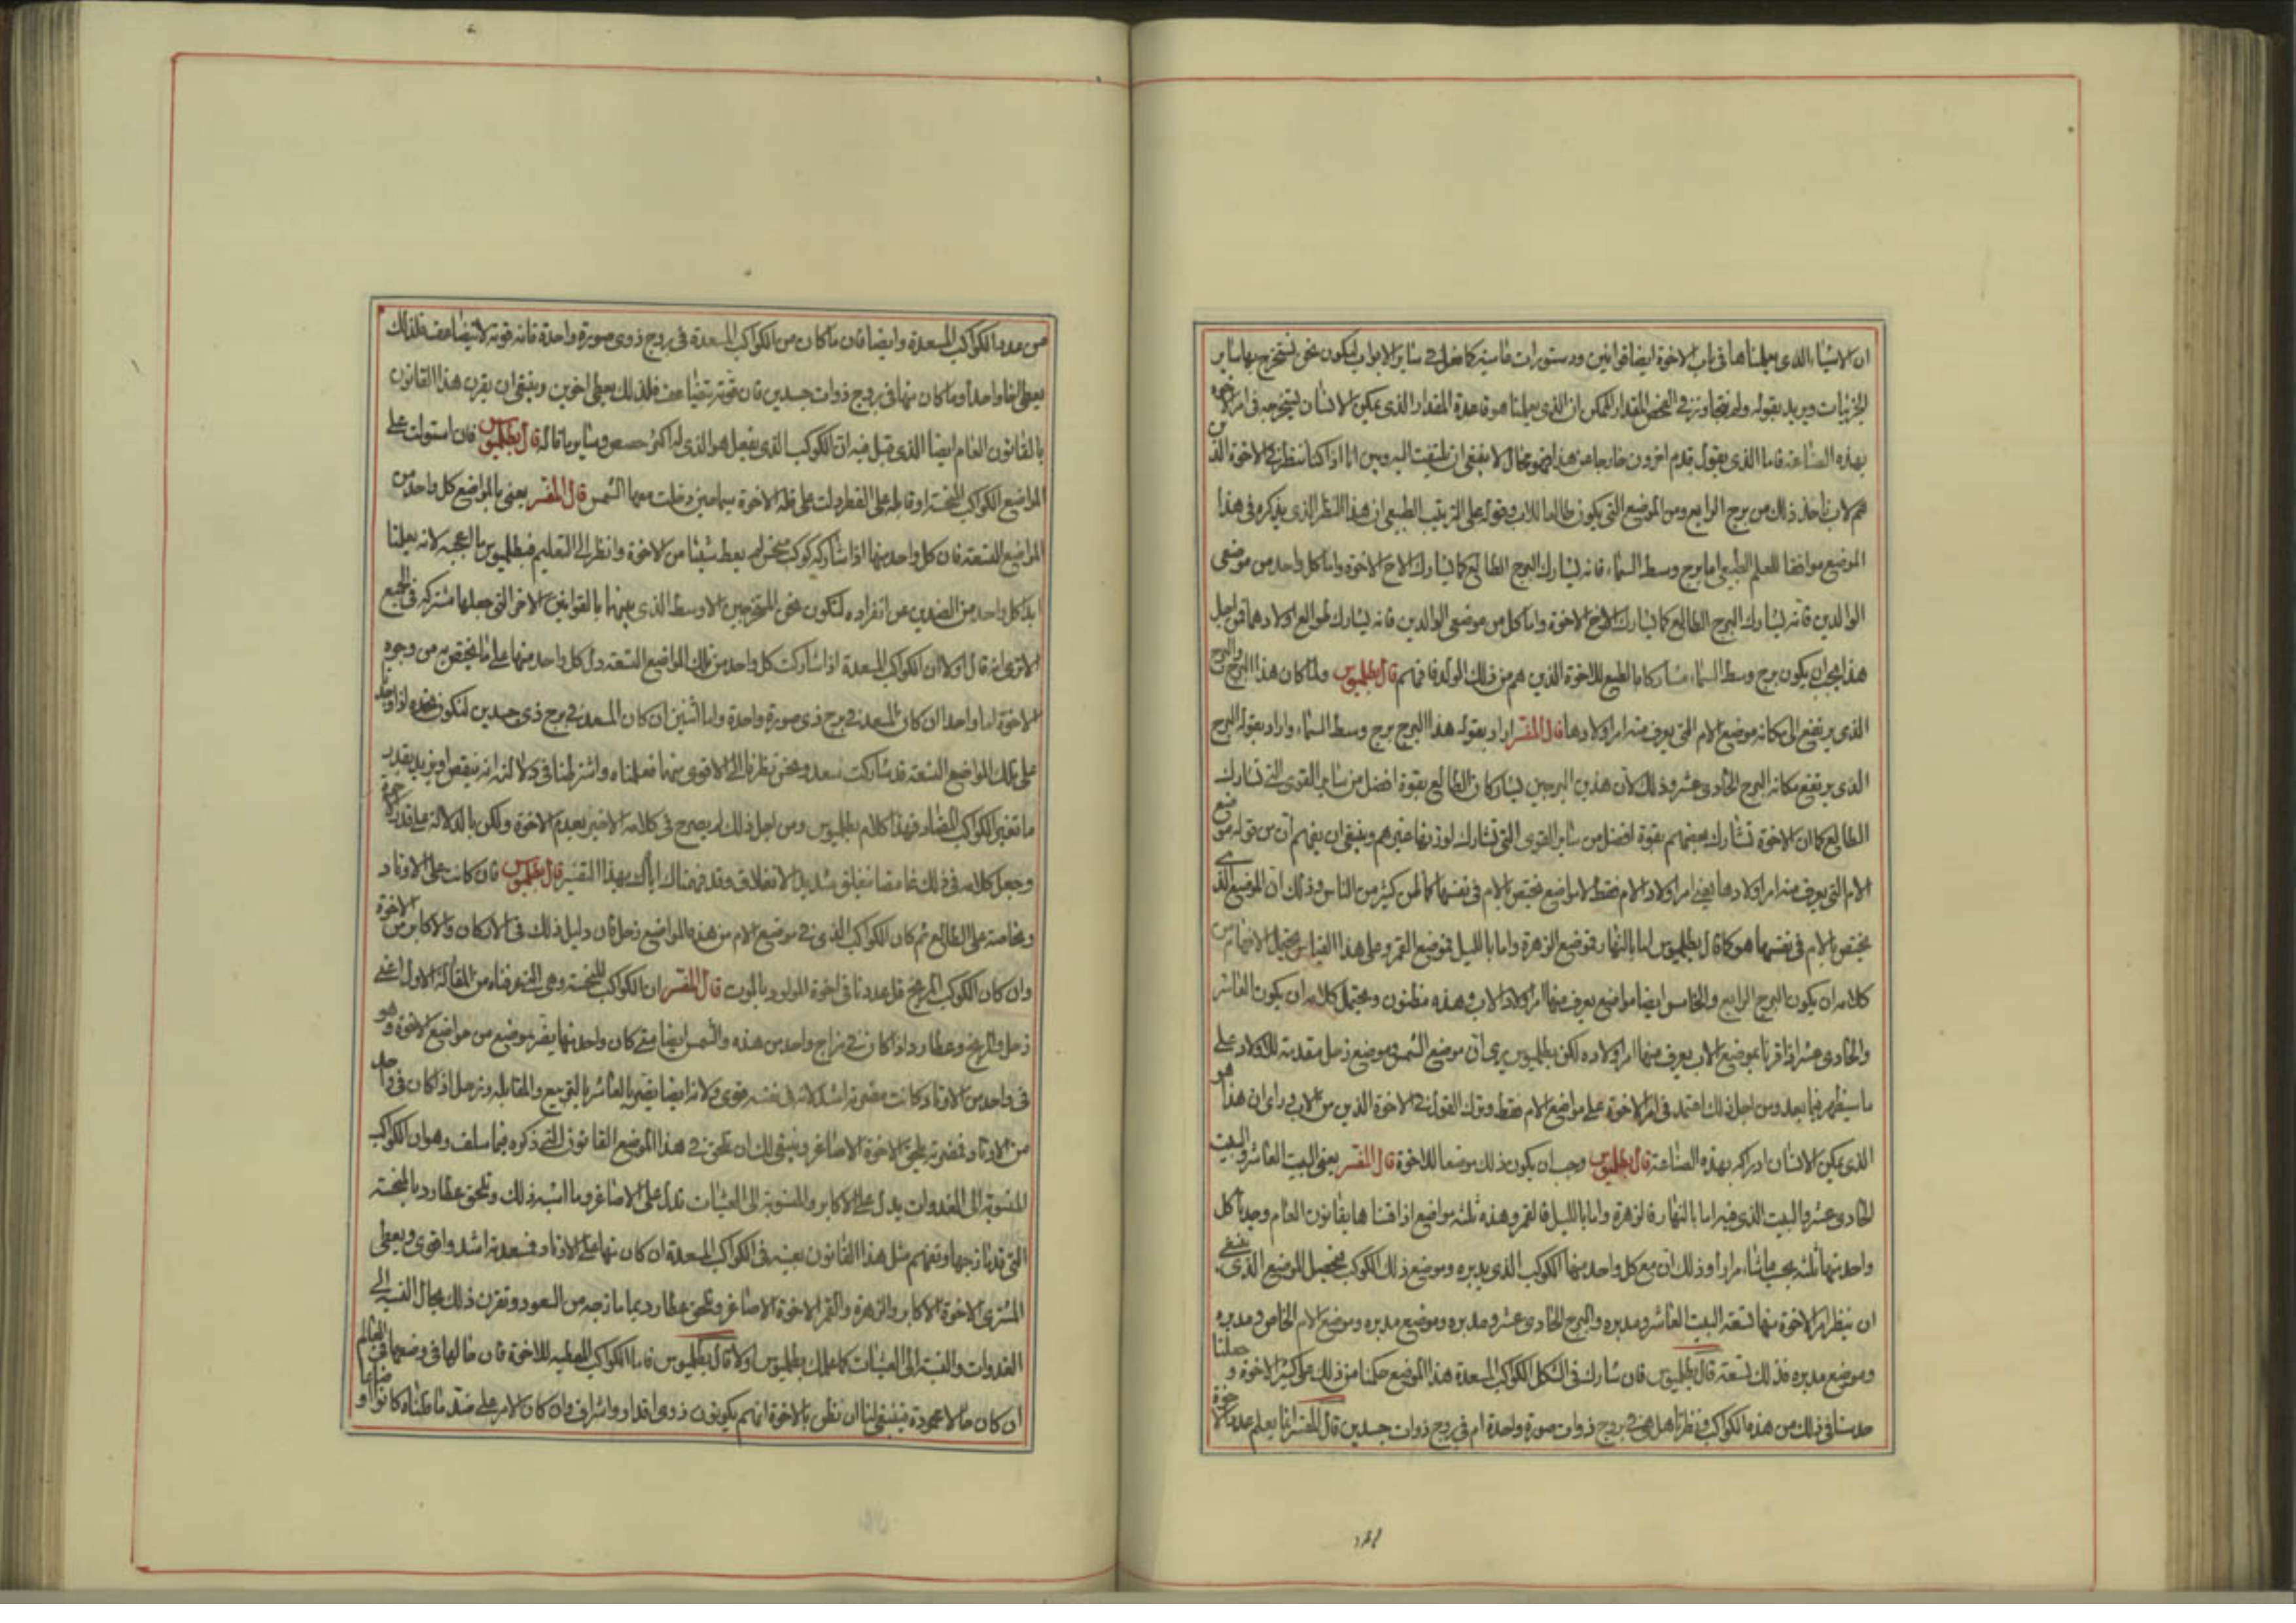 ان الاشياء الذى يعلمناها فى باب الاخوة ايضا قوانين ودستورات قاسية كما فعل فى ساير الابواب ليكون نحن نستخرج بها ساير
الجزئيات ويريد بقوله ولم نتجاوز فى البحث المقدار الممكن ان الذى يعلمنا هو قاعدة المقدار الذى يمكن الانسان ان يستخرجه فى امر الاخوة
بهذه الصناعة فاما الذى يقول قدم اخرون خارجا عن هذا فهو محال لا ينبغى ان نلتفت اليه وبين انا اذا كنا ننظر فى الاخوة الذين
هم لاب ناخذ ذلك من برج الرابع ومن الموضع التى يكون طالعا للاب وقوله على الترتيب الطبيعى ان هذا النظر الذى يذكره فى هذا
الموضع موافقا للعلم الطبيعى اما برج وسط السماء فانه يشارك البرج الطالع كما يشارك الاخ الاخوة واما كل واحد من موضعى
الوالدين فانه يشارك البرج الطالع كما يشارك الاخ الاخوة واما كل من موضعى الوالدين فانه يشارك طوالع اولادهما فمن اجل
هذا يجب ان يكون برج وسط السماء مشاركا بالطبع للاخوة الذين هم من ذلك المولد فافهم قال بطلميوس ولما كان هذا البرج والبرج
الذى يرتفع الى مكانه موضع الام التى يعرف منه امر اولادها قال المفسر اراد بقوله هذا البرج برج وسط السماء واراد بقوله البرج
الذى يرتفع مكانه البرج الحادى عشر وذلك لان هذين البرجين يشاركان الطالع بقوة افضل من ساير القوى التى تشارك
الطالع كما ان الاخوة تشارك بعضهم بقوة افضل من ساير القوى التى تشارك غيرهم وينبغى ان يفهم ان من قوله موضع
الام التى يعرف منه امر اولادها يعنى امر اولاد الام فقط لا موضع يختص بالام فى نفسها كما ظن كثير من الناس وذلك ان الموضع الذى
يختص بالام فى نفسها هو كما قال بطلميوس اما بالنهار فموضع الزهرة واما بالليل فموضع القمر وعلى هذا القياس يحتمل
كلامه ان يكون البرج الرابع والخامس ايضا مواضع يعرف منها امر اولاد الاب وهذه مظنون ويحتمل كلامه ان يكون العاشر
والحادى عشر اذا قرنا بموضع الاب يعرف منهما امر اولاده لكن بطلميوس يرى ان موضع الشمس وموضع زحل مقدمة للاولاد على
ما سيظهر فيما بعد ومن اجل ذلك اعتمد فى امر الاخوة على مواضع الام فقط وترك القول فى الاخوة الذين من الاب وراى ان هذا هو
الذى يمكن الانسان ادراكه بهذه الصناعة قال بطلميوس وجب ان يكون ذلك موضعا للاخوة قال المفسر يعنى البيت العاشر والبيت
الحادى عشر والبيت الذى فيه اما بالنهار فالزهرة واما بالليل فالقمر وهذه ثلثه مواضع اذا قسنا ها بقانون العام وجدنا كل
واحد منها ثلثه مرارا وذلك ان مع كل واحد منها الكوكب الذى يدبره وموضع ذلك الكوكب فيحصل الموضع الذى ينبغى
ان ينظر امر الاخوة منها تسعة البيت العاشر ومدبره والبرج الحادى عشر ومدبره وموضع مدبره وموضع الام الخاص ومدبره
وموضع مدبره فذلك تسعة قال بطلميوس فان شارك فى الشكل الكواكب المسعدة هذا الموضع حكمنا من ذلك على كثير الاخوة و جعلنا
حدسنا فى ذلك من هذه الكواكب ونظرنا هل هى فى بروج ذوات صورة واحدة ام فى بروج ذوات جسدين قال المفسر انما يعلم عدد الاخوة
من عدد الكواكب المسعدة وايضا فان ما كان من الكواكب المسعدة فى بروج ذوى صورة واحدة فانه قوته لا يتضاعف فلذلك
يعطى اخا واحدا وما كان منها فى بروج ذوات جسدين فان قوته تتضاعف فلذلك يعطى اخوين وينبغى ان يقرن هذا القانون
بالقانون العام ايضا الذى قبل فيه ان الكوكب الذى يفعل هو الذى له اكثر حصص وساير ما قاله قال بطلميوس فان استولت على
المواضع الكواكب المنحسة او قابلته على القطر دلت على قلة الاخوة سيما حين دخلت معها الشمس قال المفسر يعنى بالمواضع كل واحد من
المواضع التسعة فان كل واحد منها اذا شاركه كوكب منحس لم يعط شيئا من الاخوة وانظر الى التعليم فبطلميوس ما اعجبه لانه يعلمنا
ابدا كل واحد من الضدين عن انفراده لنكون نحن المستخرجين الاوسط الذى بينهما بالقوانين الاخر التى جعلها مشتركة فى الجميع
الا ترى انه قال اولا ان الكواكب المسعدة اذا شاركت كل واحد من تلك المواضع التسعة دل كل واحد منها على ما يختص به من وجوه
الاخوة اما واحدا ان كان المسعد فى برج ذى صورة واحدة واما اثنين ان كان المسعد فى برج ذى جسدين لنكون نحن اذا وجدنا
على تلك المواضع التسعة قد شاركت سعد ونحس نظرنا الى الاقوى منهما فعلمناه واشترطنا فى دلالته انه ينقص او يزيد بقدر
ما تغير الكواكب المضاد فهذا كلام بطلميوس ومن اجل ذلك لم يصرح فى كلامه الاخير بعدم الاخوة ولكن بالدلالة على قلة الاخوة
وجعل كلامه فى ذلك غامضا منغلق شديد الانغلاق وقد فهمناك اياك بهذا التفسير قال بطلميوس فان كانت على الاوتاد
وبخاصة على الطالع ثم كان الكواكب الذى فى موضع الام من هذه المواضع زحل فان دليل ذلك فى الاركان والاكابر من الاخوة
وان كان الكوكب المريخ قل عددنا فى اخوة المولود بالموت قال المفسر ان الكواكب المنحسة وهى التى عرفناه من المقالة الاولى اعنى
زحل والمريخ وعطارد اذا كان فى مزاج واحد من هذه والشمس ايضا متى كان واحد منها يضر بموضع من مواضع الاخوة وهو
فى واحد من الاوتاد كانت مضرته اشد لانه فى نفسه قوى ولانه ايضا يضر بالعاشر بالتربيع والمقابلة وزحل اذا كان فى واحد
من الاوتاد فمضرته تلحق الاخوة الاصاغر وينبغى لك ان تلحق فى هذا الموضع القانون التى ذكره فيما سلف وهو ان الكواكب
المنسوبة الى الغدوات يدل على الاكابر والمنسوبة الى العشيات تدل على الاصاغر وما اشبه ذلك وتلحق عطارد بالمنحسة
التى قد مازجها وتفهم مثل هذا القانون بعينه فى الكواكب المسعدة ان كان منها على الاوتاد فسعده اشد واقوى ويعطى
المشترى الاخوة الاكابر والزهرة والقمر الاخوة الاصاغر وتلحق عطارد بما مازجه من السعود وتقرن ذلك بحال النسبة الى
الغدوات والنسبة الى العشيات كما علمك بطلميوس اولا قال بطلميوس فاما الكواكب المعطية للاخوة فان حالها فى وضعها فى العالم
ان كان حالا محمودة فينبغى لنا ان نظن بالاخوة انهم يكونون ذوى اقدار واشراف وان كان الامر على ضد ما قلناه كانوا